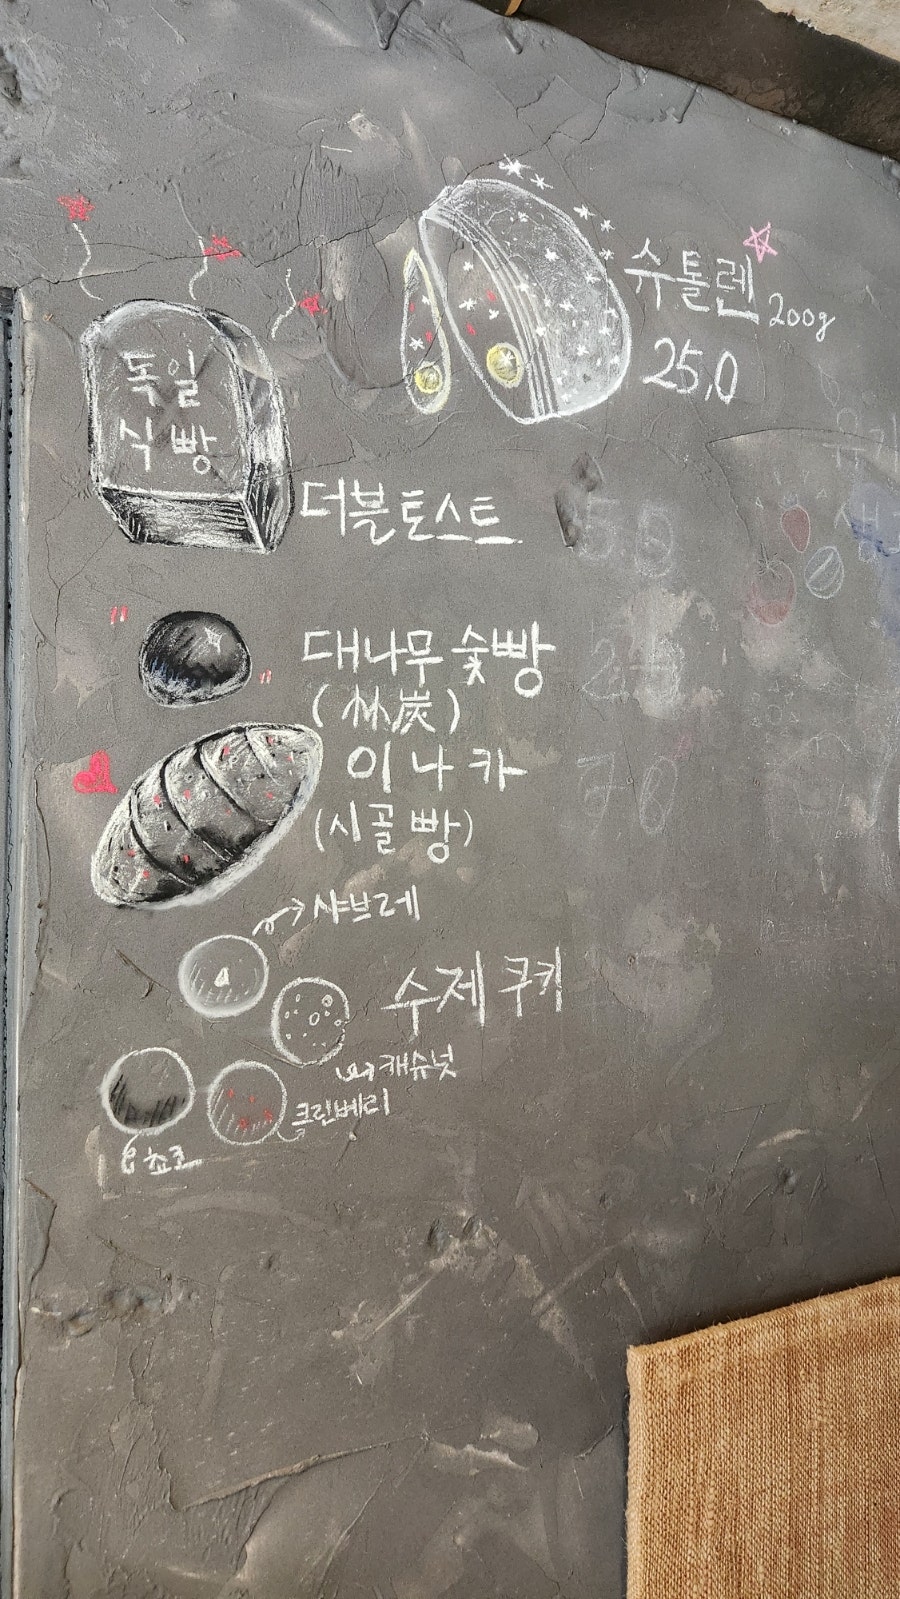 슈톨렌 200g
25,0
독일
식빵
더블토스트
5.5
대나무 숯빵
(林炭)
이나카
(시골빵)
샤브레
수제 쿠키
캐슈넛
크린베리
쵸코